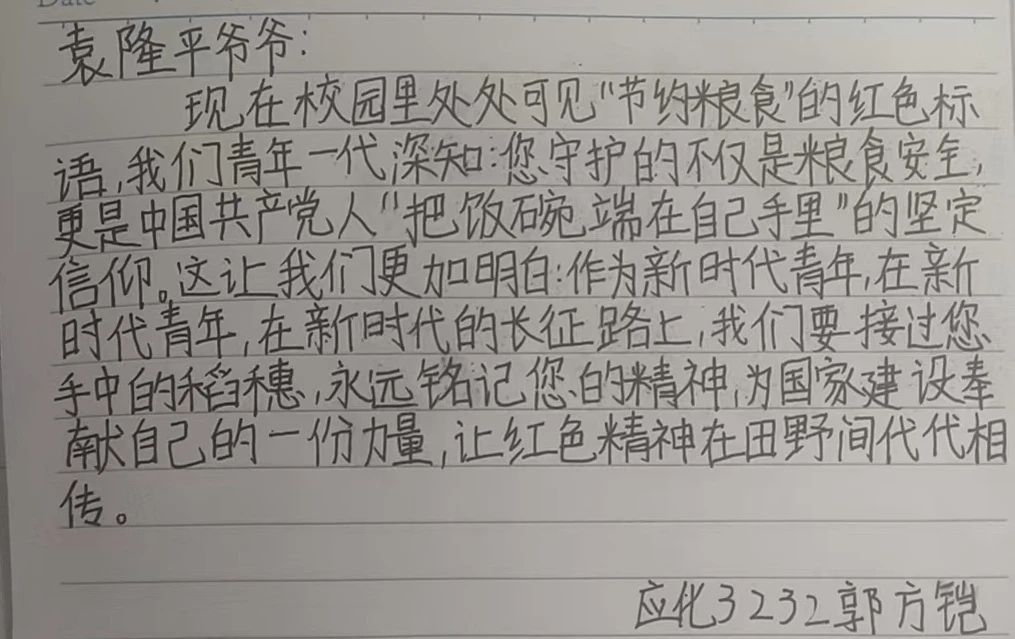 Date
袁隆平爷爷:
现在校园里处处可见"节约粮食"的红色标
语,我们青年一代深知:您守护的不仅是粮食安全,
更是中国共产党人"把饭碗端在自己手里"的坚定
信仰。这让我们更加明白:作为新时代青年,在新
时代青年,在新时代的长征路上,我们要接过您
手中的稻穗,永远铭记您的精神,为国家建设奉
献自己的一份力量,让红色精神在田野间代代相
传。
应化3232郭方铠